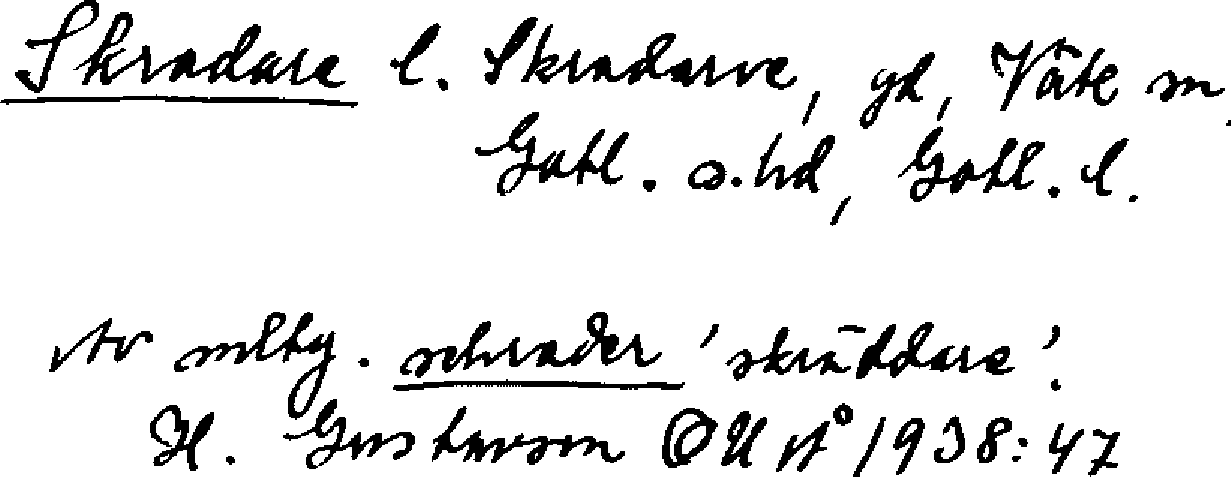 Skradare l. Skradarve, gd, Väte sn,
Gotl. s. hd, Gotl. l.
Av mlty. schrader 'skräddare'.
H. Gustavson OUÅ 1938:47